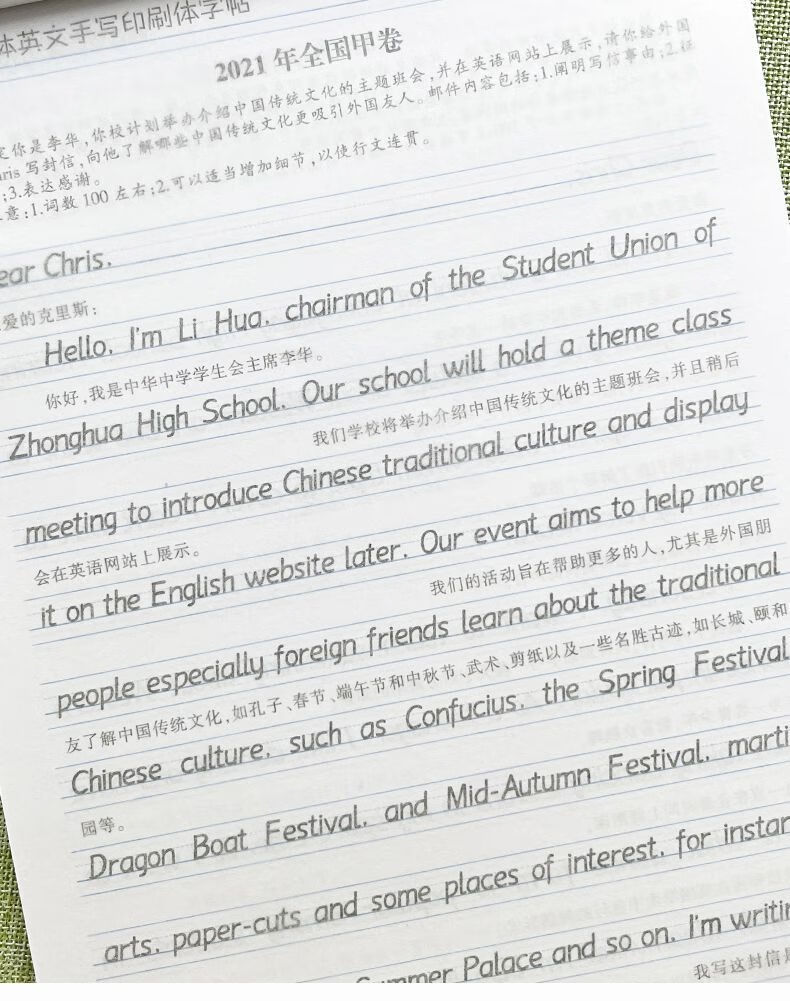 体英文手写印刷体字帖
2021年全国甲卷
你是李华,你校计划举办介绍中国传统文化的主题班会,并在英语网站上展示,请你给外国
ris 写封信,向他了解哪些中国传统文化更吸引外国友人。邮件内容包括:1.阐明写信事由;2.征
;3.表达感谢。
意:1.词数100左右;2.可以适当增加细节,以使行文连贯。
ear Chris,
爱的克里斯:
Hello, I'm Li Hua, chairman of the Student Union of
你好,我是中华中学学生会主席李华。
Zhonghua High School. Our school will hold a theme class
我们学校将举办介绍中国传统文化的主题班会,并且稍后
meeting to introduce Chinese traditional culture and display
会在英语网站上展示。
it on the English website later. Our event aims to help more
我们的活动旨在帮助更多的人,尤其是外国朋
people especially foreign friends learn about the traditional
友了解中国传统文化,如孔子、春节、端午节和中秋节、武术、剪纸以及一些名胜古迹,如长城、颐和
Chinese culture, such as Confucius, the Spring Festival
园等。
Dragon Boat Festival, and Mid-Autumn Festival, marti
arts, paper-cuts and some places of interest, for instan
Summer Palace and so on. I'm writin
我写这封信是